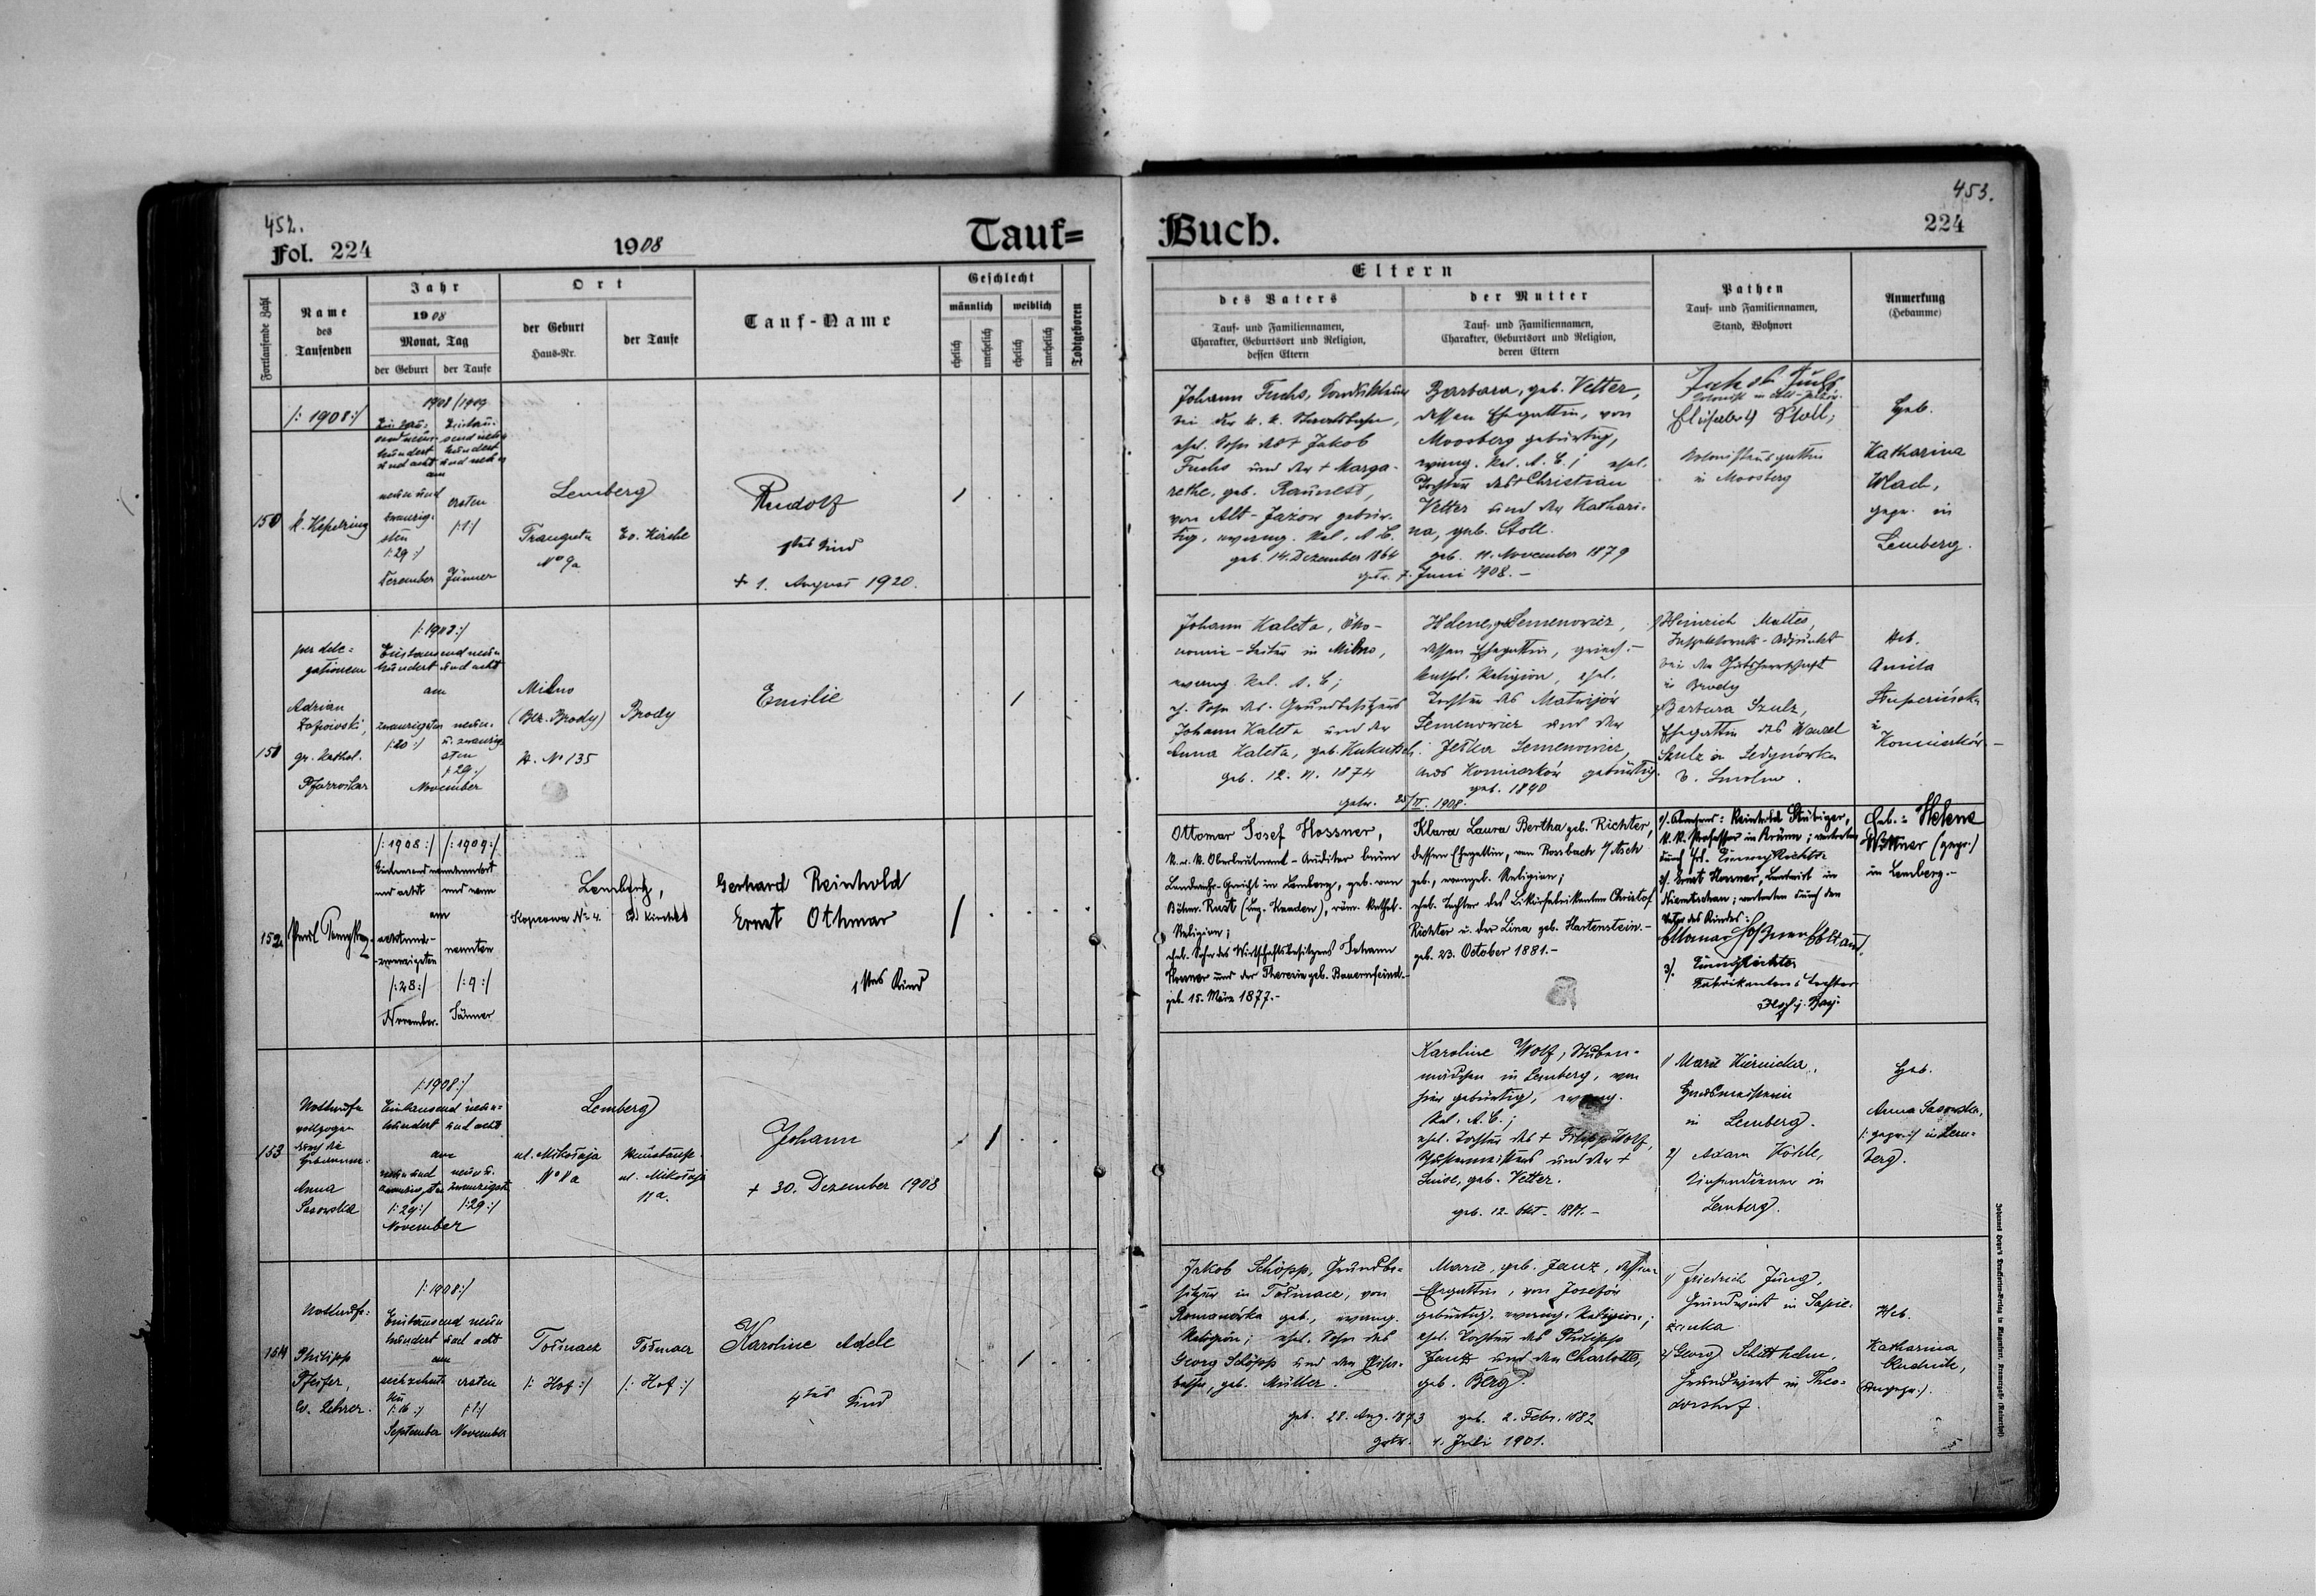 452.
Fol. 224
1908
Tauf=
Fortlaufende Zahl
Name
des
Taufenden
Jahr
1908
Monat, Tag
der Geburt
der Taufe
Ort
der Geburt
Haus-Nr.
der Taufe
Tauf-Name
Geschlecht
männlich
weiblich
ehelich
unehelich
ehelich
unehelich
Todtgeboren
/: 1908 :/
150
1908/1909
Eintau- Eintau-
send neun- send neun
hundert hundert
und acht und neun
am
neun und
zwanzig-
sten
/:29:/
Dezember
ersten
/:1:/
Jänner
Lemberg
No 9a
Ev. Kirche
Rudolf
1tes Kind
+ 1. August 1920.
151
per dele=
gationem
Adrian
gr. kathol.
Pfarrvikar
/:1908:/
Eintausend neun
hundert und acht
am
zwanzigsten
/:20:/
neun-
u. zwanzig-
sten
/:29:/
November
Milno
(Bez. Brody)
H. No 135
Brody
Emilie
152
/:1908:/ /:1909:/
Eintausend neunhundert
und acht und neun
am
achtund-
zwanzigsten
/:28:/
November.
neunten
/:9:/
Jänner
Lemberg,
No 4.
Ev. Kirche
Gerhard Reinhold
Ernst Othmar
1stes Kind
153
Nottaufe
vollzogen
durch die
Hebamme:
Anna
Sasowska
/:1908:/
Eintausend neun-
hundert und acht
am
neun und
zwanzigsten
/:29:/
neun u.
zwanzigsten
/:29:/
November
Lemberg
ul. Mikołaja
ul. Mikołaja
11a.
Johann
+ 30. Dezember 1908
154
Nottaufe:
Philipp
Pfeifer,
ev. Lehrer.
/:1908:/
Eintausend neun
hundert und acht
am
sechzehn-
ten
/:16:/
September
ersten
/:1:/
November
Tołmacz
/: Hof :/
Tołmacz
/: Hof :/
Karoline Adele
4tes Kind
453.
Buch.
224
Eltern
des Vaters
Tauf- und Familiennamen,
Charakter, Geburtsort und Religion,
dessen Eltern
der Mutter
Tauf- und Familiennamen,
Charakter, Geburtsort und Religion,
deren Eltern
Pathen
Tauf- und Familiennamen,
Stand, Wohnort
Anmerkung
(Hebamme)
Johann Fuchs, Kondukteur
bei der k. k. Staatsbahn,
ehel. Sohn des + Jakob
Fuchs und der + Marga-
rethe, geb.
von Alt-Jażow gebür-
tig, evang. Rel. A. B.
geb. 14. Dezember 1864
Barbara, geb. Vetter,
dessen Ehegattin, von
Moosberg gebürtig,
evang. Rel. A. B.; ehel.
Tochter des + Christian
Vetter und der Kathari-
na, geb. Stoll.
geb. 11. November 1879
getr. 7. Juni 1908. -
Jakob Fuchs
Kolonist in Alt-Jażow.
Elisabeth Stoll;
Kolonistensgattin
in Moosberg
Heb.
Katharina
Wlach,
gepr. in
Lemberg.
Johann Kaleta, Öko-
nomie-Leiter in Milno,
evang. Rel. A. B.;
eh. Sohn des Grundbesitzers
Johann Kaleta und der
Anna Kaleta, geb.
geb. 12. 11. 1874
Helene, geb. Semenowicz,
dessen Ehegattin, griech.-
kathol. Religion, ehel.
Tochter des Matwijów
Semenowicz und der
Semenowicz,
aus Koniuszków gebürtig.
geb. 1890
getr. 25/II. 1908.
1) Heinrich Mattes,
bei der Gutsherrschaft
in Brody
2) Barbara Szulz,
Ehegattin des Wenzel
Szulz in
Heb.
Aniela
in
Koniuszków. -
Ottomar Josef Hossner,
k. k. Oberleutnant-Auditor beim
Landwehr-Gericht in Lemberg, geb. von
Böhm. Rust (Bez. Kaaden), röm. kathol.
Religion;
ehel. Sohn des Wirtschaftsbesitzers Johann
Hossner und der Theresia geb. Bauernfeind.-
geb. 15. März 1877.-
Klara Laura Bertha geb. Richter,
dessen Ehegattin, von Rossbach b/ Asch
geb., evangel. Religion;
ehel. Tochter des Likörfabrikanten Christof
Richter u. der Lina geb. Hartenstein.-
geb. 23. October 1881.-
k. k. Professor in Brünn; vertreten
2). Ernst Hossner, Landwirt in
vertreten durch den
Vater des Kindes:
3).
Fabrikantens Tochter
Geb.: Helene
Wittner (gepr.)
in Lemberg.-
Karoline Wolf, Stuben-
mädchen in Lemberg, von
hier gebürtig, evang.
Rel. A. B.;
ehel. Tochter des + Filipp Wolf,
und der +
Luise, geb. Vetter.
geb. 12. Okt.
1) Marie Kiernicka,
Hausmeisterin
in Lemberg.
2) Adam Köhle,
Kirchendiener in
Lemberg.
Heb.
Anna Sasowska,
/: gepr. :/ in Lem-
berg.
Jakob Schöpp, Grundbe-
sitzer in Tołmacz, von
Romanówka geb., evang.
Religion; ehel. Sohn des
Georg Schöpp und der Elisa-
betha, geb. Müller.
geb. 28. Aug. 1873
Marie, geb. Janz, dessen
Ehegattin, von Josefów
gebürtig, evang. Religion;
ehel. Tochter des Philipp
Janz und der Charlotte,
geb. Berg.
geb. 2. Febr. 1882
getr. 4. Juli 1901.
1) Friedrich Jung,
Grundwirt in Sapie-
żanka
2) Georg Schitthelm,
Grundwirt in Theo-
dorshof.
Heb.
Katharina
(ungepr.).